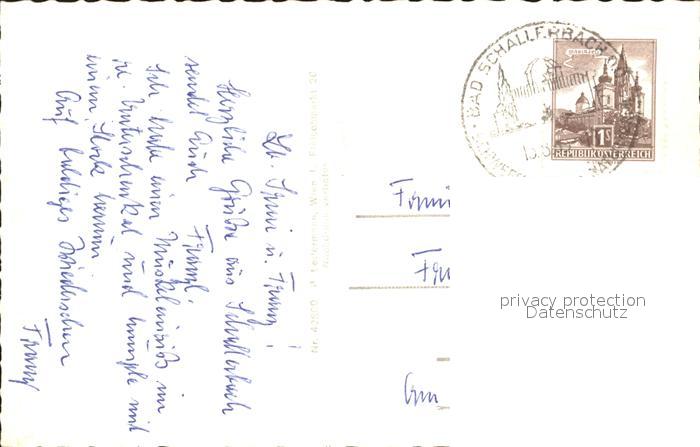 Lb. Irmi u. Franz!
Herzliche Grüße aus Schallerbach
sendet Euch Franzl.
Ich habe einen Muskelriß im
re. Unterschenkel und humple mit
einem Stock herum
Auf baldiges Wiedersehen
Franz
Nr. 42800 P. Ledermann, Wien I., Fleischmarkt 20
BAD SCHALLERBACH
MARIAZELL
1S
REPUBLIK ÖSTERREICH
Fami
privacy protection
Datenschutz